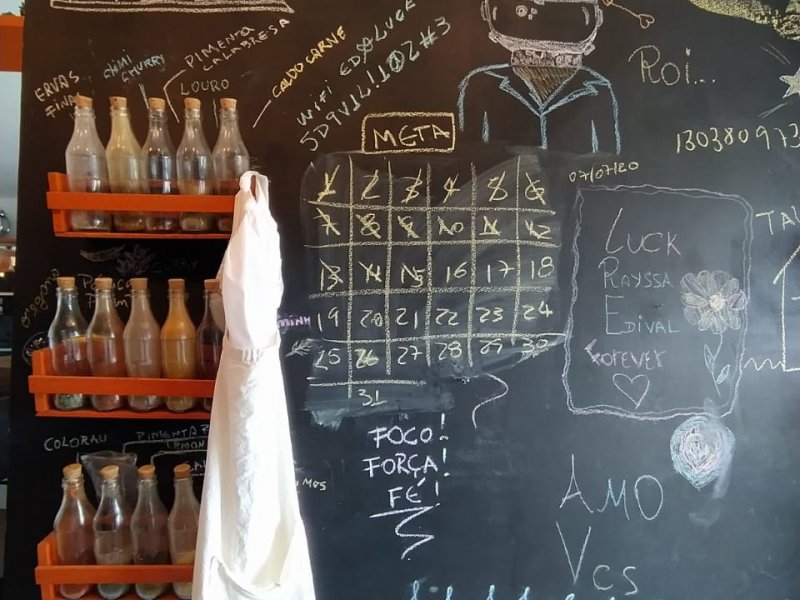 ERVAS
FINAS
CHIMI
CHURRY
PIMENTA
CALABRESA
LOURO
CALDO CARNE
WIFI EDALUCE
META
1 2 3 4 5 6
7 8 9 10 11 12
13 14 15 16 17 18
19 20 21 22 23 24
25 26 27 28 29 30
31
FOCO!
FORÇA!
FÉ!
Roi...
130380973
07/07/20
LUCK
RAYSSA
EDIVAL
FOREVER
AMO
VCS
OREGANO
CURRY
COLORAU
PIMENTA
LEMON